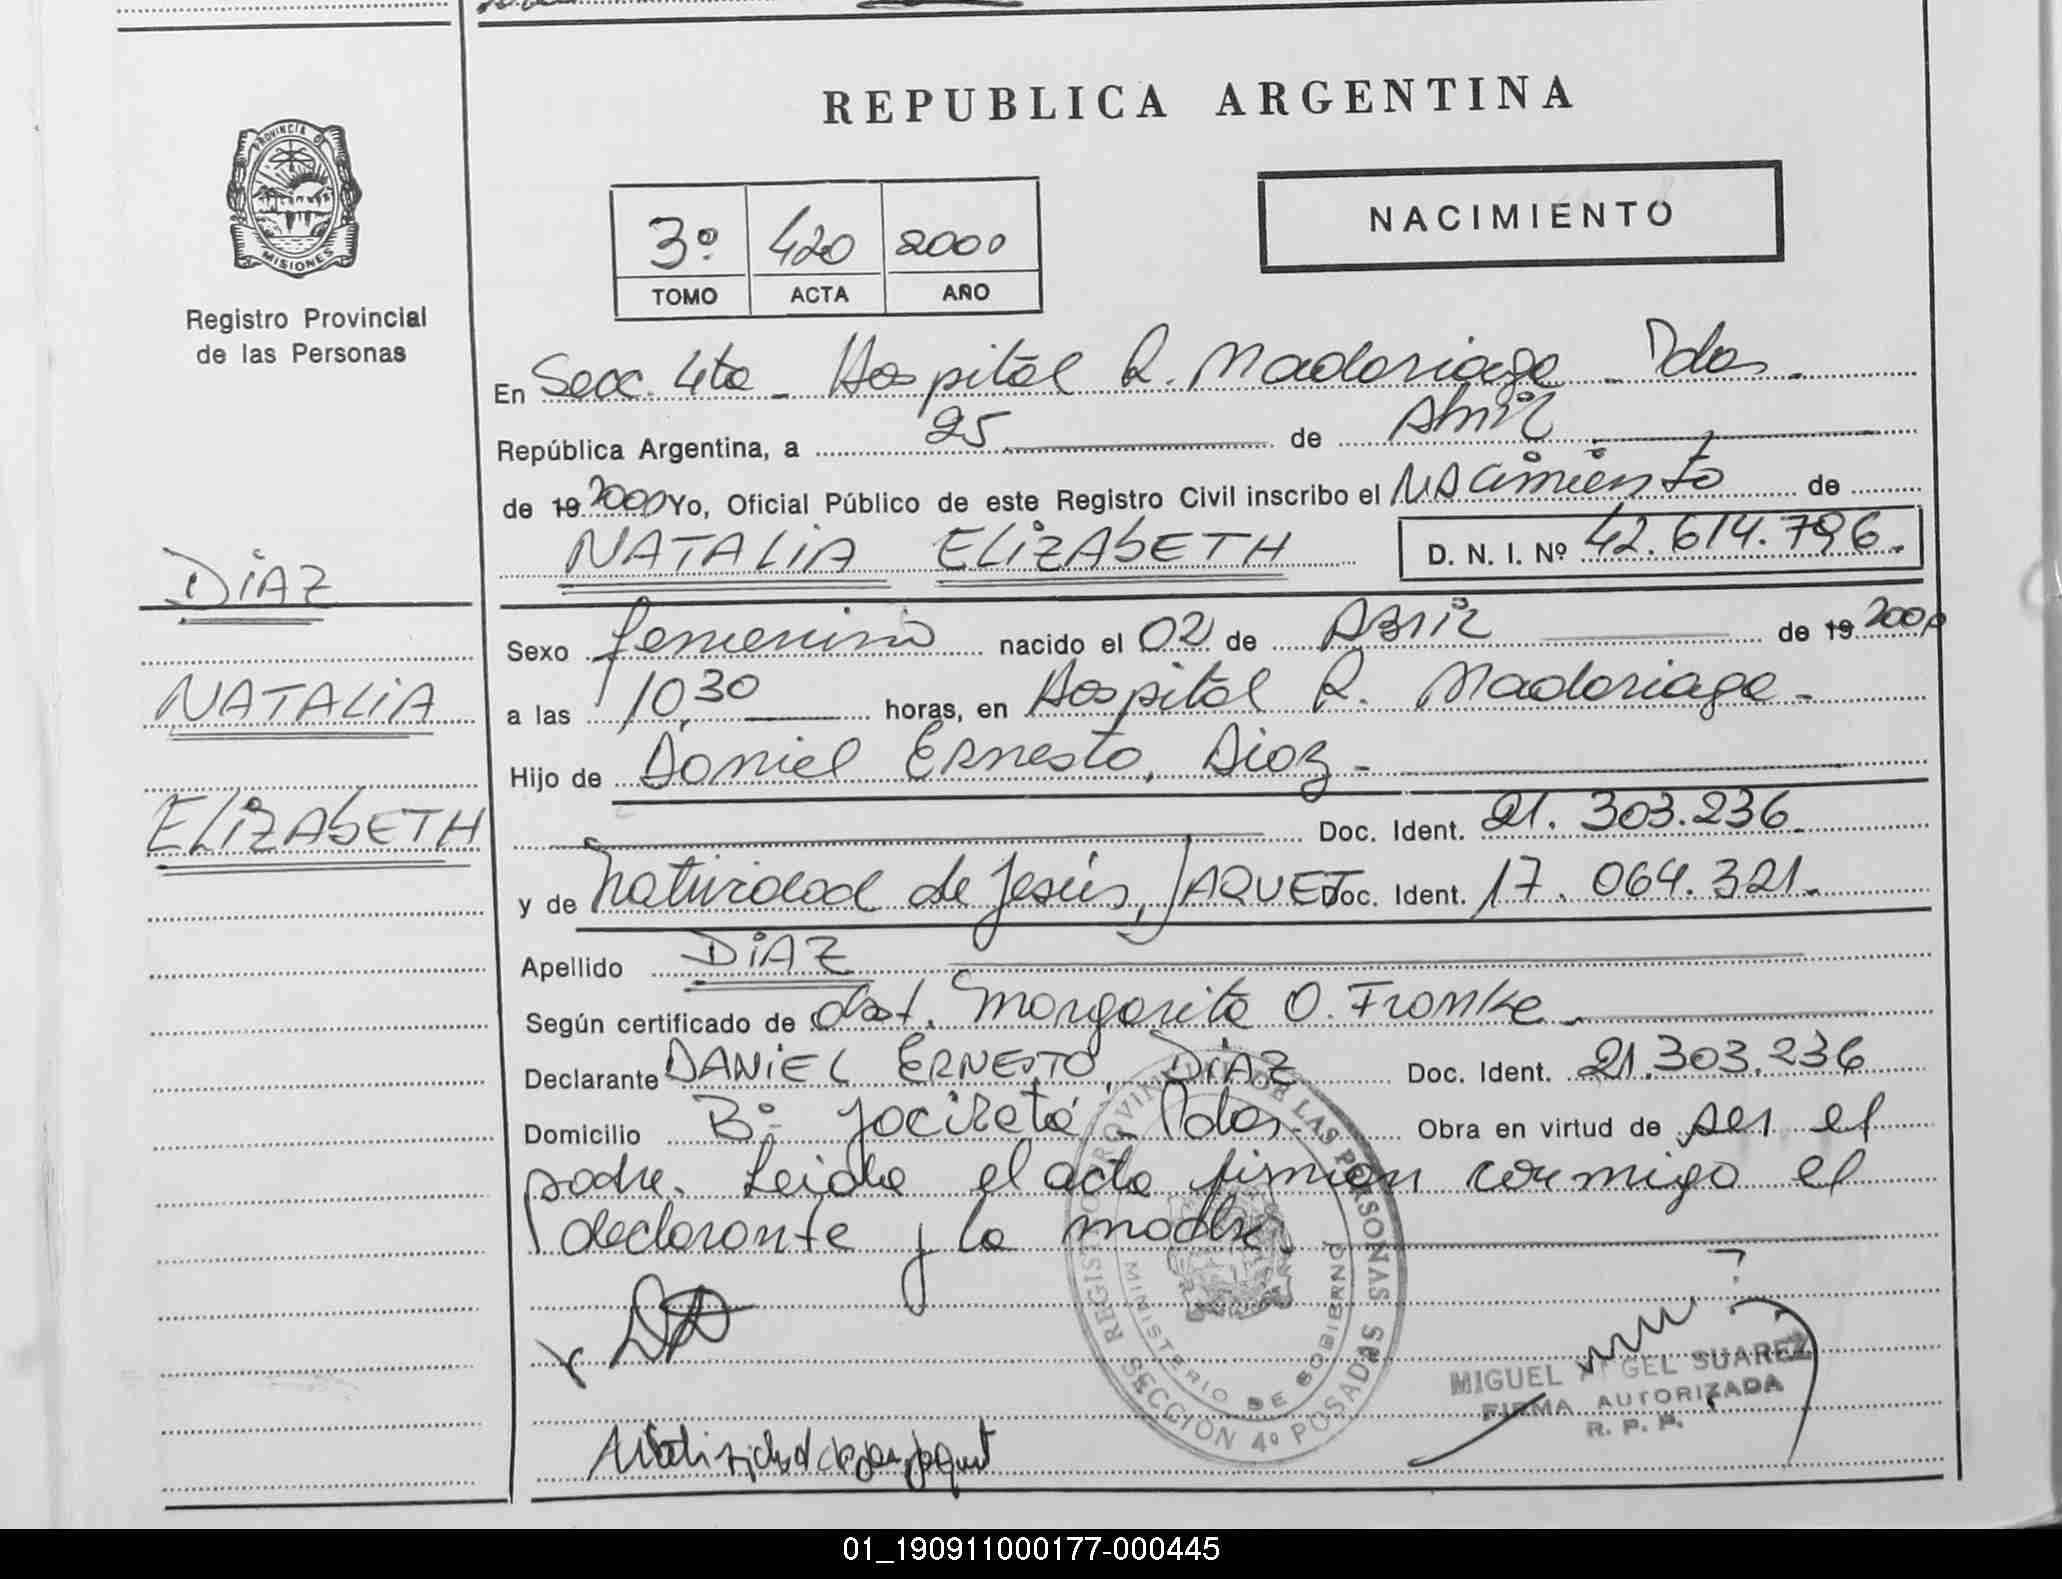 REPUBLICA ARGENTINA
PROVINCIA DE
MISIONES
Registro Provincial
de las Personas
NACIMIENTO
3º 420 2000
TOMO ACTA AÑO
En Secc. 4ta - Hospital R. Madariaga - Pdas.
República Argentina, a 25 de Abril
de 19 2000 Yo, Oficial Público de este Registro Civil inscribo el NACimiento de
NATALIA ELIZABETH D. N. I. Nº 42.614.796.
DIAZ
NATALIA
ELIZABETH
Sexo femenino nacido el 02 de ABRIL de 19 2000
a las 10,30 horas, en Hospital R. Madariaga -
Hijo de Daniel Ernesto, Diaz -
Doc. Ident. 21. 303.236.
y de Natividad de Jesús, JAQUET Doc. Ident. 17. 064.321.
Apellido DIAZ
Según certificado de obst. Margarita O. Franke -
Declarante DANIEL ERNESTO, DIAZ Doc. Ident. 21.303.236
Domicilio Bº Yacireta - Pdas. Obra en virtud de ser el
padre. Leida el acta firman conmigo el
declarante y la madre.
REGISTRO PROVINCIAL DE LAS PERSONAS
MINISTERIO DE GOBIERNO
SECCION 4º POSADAS
MIGUEL GEL SUAREZ
FIRMA AUTORIZADA
R. P. P.
01_190911000177-000445